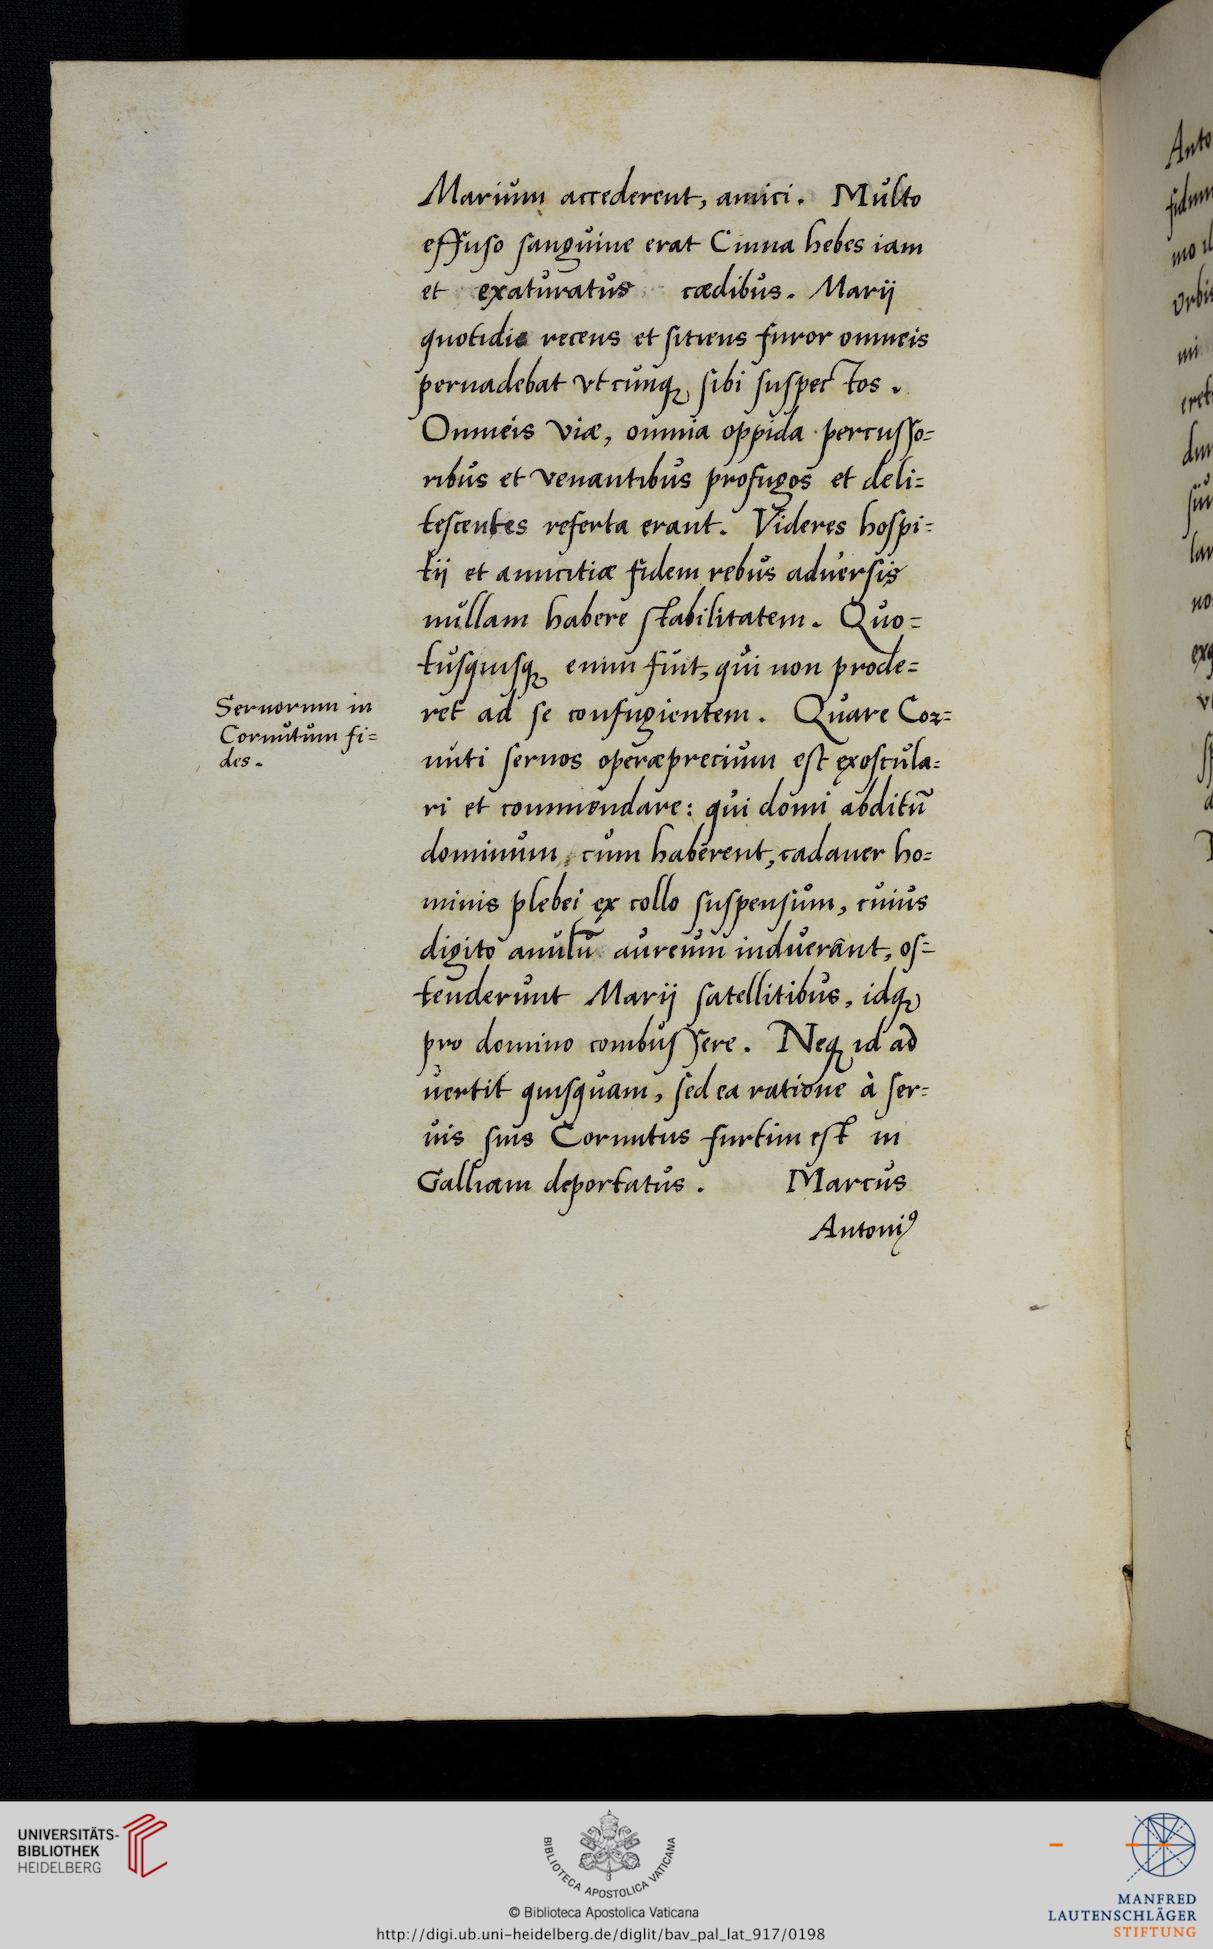 Marium accederent, amici. Multo
effuso sanguine erat Cinna hebes iam
et exaturatus cædibus. Marij
quotidie recens et sitiens furor omneis
peruadebat vtcunq; sibi suspectos.
Omneis viæ, omnia oppida percusso=
ribus et venantibus profugos et deli=
tescentes referta erant. Videres hospi=
tij et amicitiæ fidem rebus aduersis
nullam habere stabilitatem. Quo=
tusquisq; enim fuit, qui non prode=
ret ad se confugientem. Quare Cor=
nuti seruos operæprecium est exoscula=
ri et commendare: qui domi abditū
dominum cum haberent, cadauer ho=
minis plebei ex collo suspensum, cuius
digito anulū aureum induerant, os=
tenderunt Marij satellitibus, idq;
pro domino combussere. Neq; id ad
uertit quisquam, sed ea ratione à ser=
uis suis Cornutus furtim est in
Galliam deportatus. Marcus
Antoniꝰ
Seruorum in
Cornutum fi=
des.
Anto
fidum
mo il
vrbi
mi
eret
dum
lan
no
exq
UNIVERSITÄTS-
BIBLIOTHEK
HEIDELBERG
BIBLIOTECA APOSTOLICA VATICANA
© Biblioteca Apostolica Vaticana
http://digi.ub.uni-heidelberg.de/diglit/bav_pal_lat_917/0198
MANFRED
LAUTENSCHLÄGER
STIFTUNG